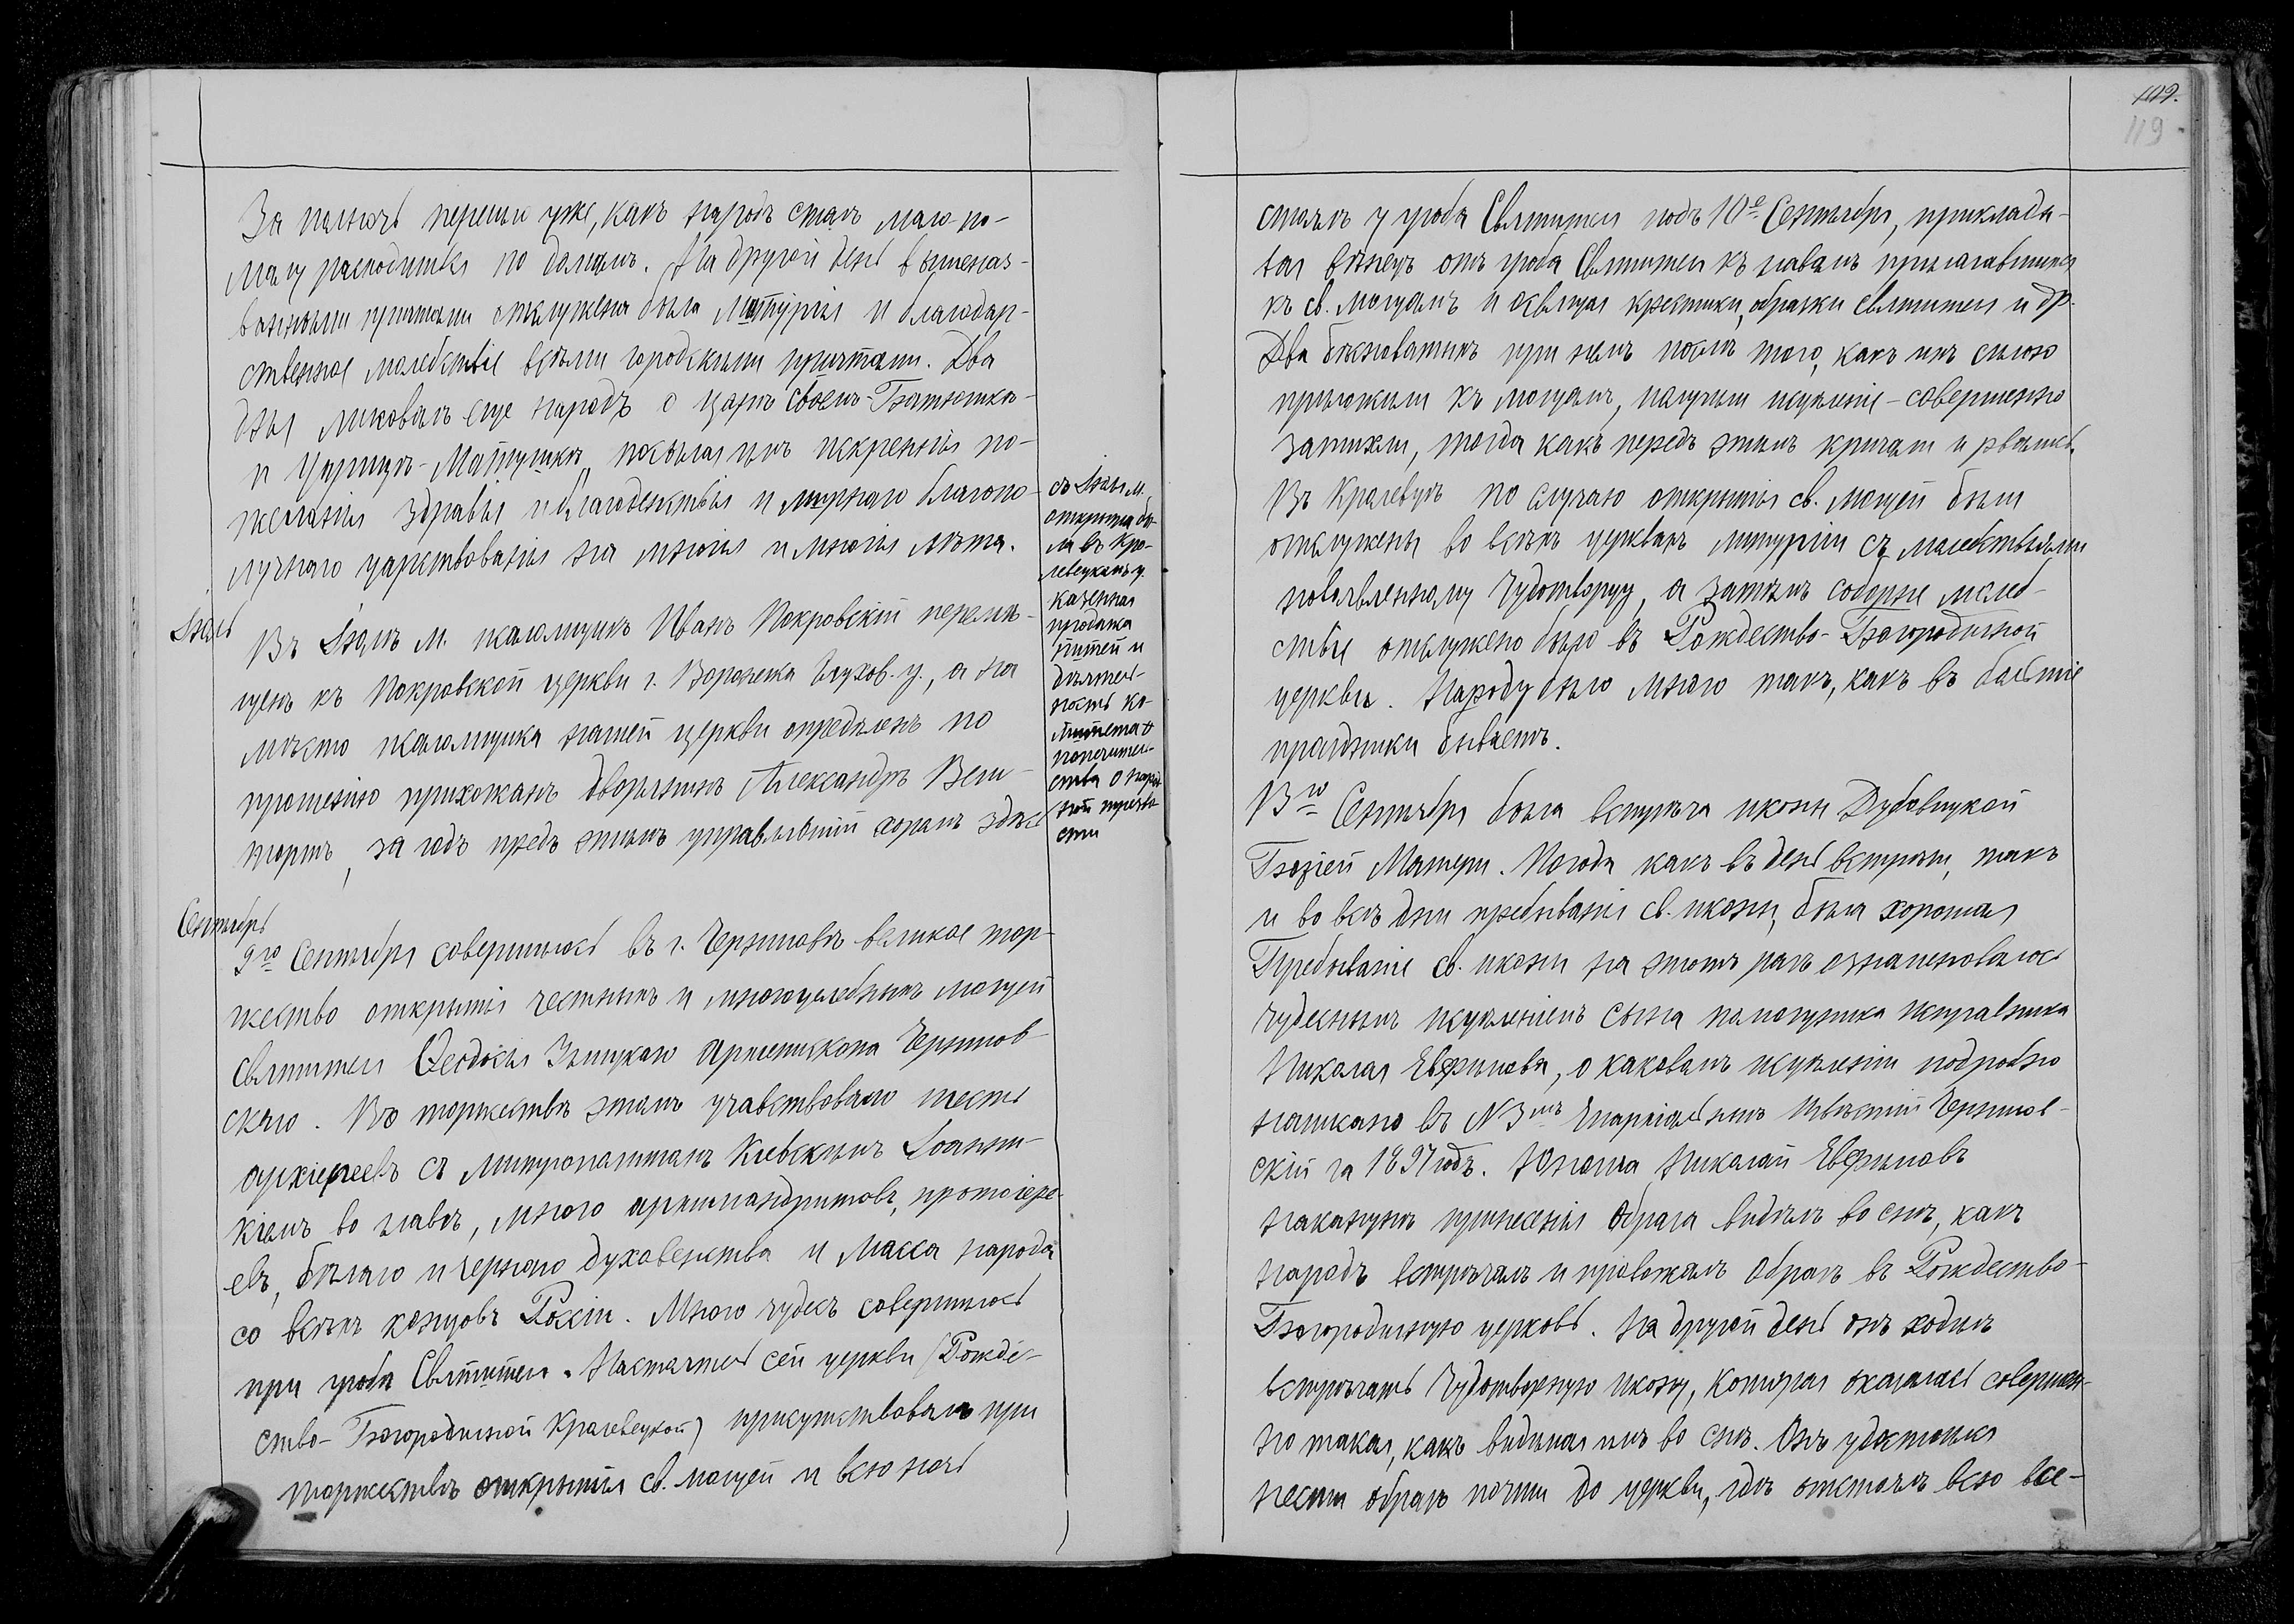 За полночь перешло уже, какъ народъ сталъ мало-по-
малу расходиться по домамъ. На другой день вышеназ-
ванными причтами отслужена была Литургія и благодар-
ственное молебствіе всѣми городскими причтами. Два
дня ликовалъ еще народъ о царѣ своемъ-Батюшкѣ
и Царицѣ-Матушкѣ, посылая имъ искреннія по-
желанія здравія и благоденствія и мирнаго благопо-
лучнаго царствованія на многія и многія лѣта.
Іюль
Въ Іюлѣ м. псаломщикъ Иванъ Покровскій перемѣ-
щенъ къ Покровской церкви г. Воронежа Глухов. у., а на
мѣсто псаломщика нашей церкви опредѣленъ по
прошенію прихожанъ дворянинъ Александръ Вели-
за годъ предъ этимъ управлявшій хоромъ здѣсь
съ Іюля м.
открыта бы-
ла въ Кро-
левецкомъ у.
казенная
продажа
питей и
дѣятель-
ность ко-
митета
попечитель-
ства о народ
ной трезво
сти
Сентябрь
9го Сентября совершилось въ г. Черниговѣ великое тор-
жество открытія честныхъ и многоцелебныхъ мощей
Святителя Ѳеодосія Углицкаго Архіепископа Чернигов-
скаго. Въ торжествѣ этомъ учавствовало шесть
архіереевъ съ Митрополитомъ Кіевскимъ Іоанни-
кіемъ во главѣ, много архимандритовъ, протоіере-
евъ, бѣлаго и чернаго духовенства и масса народа
со всѣхъ концовъ Россіи. Много чудесъ совершилось
при гробѣ Святителя. Настоятель сей церкви (Рожде-
ство-Богородичной Кролевецкой) присутствовалъ при
торжествѣ открытія св. мощей и всю ночь
119.
119
стоялъ у гроба Святителя подъ 10е Сентября, приклады-
вая вѣнецъ отъ гроба Святителя къ главамъ прилагавшихся
къ св. мощамъ и освящая крестики, образки Святителя и др.
Два бѣсноватыхъ при немъ послѣ того, какъ ихъ силою
приложили къ мощамъ, получили исцѣленіе - совершенно
затихли, тогда какъ передъ этимъ кричали и рвались.
Въ Кролевцѣ по случаю открытія св. мощей были
отслужены во всѣхъ церквахъ литургіи съ молебствіями
новоявленному Чудотворцу, а затѣмъ соборне молеб-
ствіе отслужено было въ Рождество-Богородичной
церкви. Народу было много такъ, какъ въ большіе
праздники бываетъ.
Сентября была встрѣча иконы Дубовицкой
Божіей Матери. Погода какъ въ день встрѣчи, такъ
и во всѣ дни пребыванія св. иконы, была хорошая
Пребываніе св. иконы на этотъ разъ ознаменовалось
чудеснымъ исцѣленіемъ сына помощника исправника
Николая Евфимова, о каковомъ исцѣленіи подробно
написано въ № 3мъ Епархіальныхъ Извѣстій Чернигов-
скій за 1897 годъ. Юноша Николай Евфимовъ
наканунѣ принесенія Образа видѣлъ во снѣ, какъ
народъ встрѣчалъ и провожалъ Образъ въ Рождество-
Богородичную церковь. На другой день онъ ходилъ
встрѣчать Чудотворную икону, которая оказалась совершен-
но такая, какъ видѣнная имъ во снѣ. Онъ удостоился
нести образъ почти до церкви, гдѣ отстоялъ всю все-